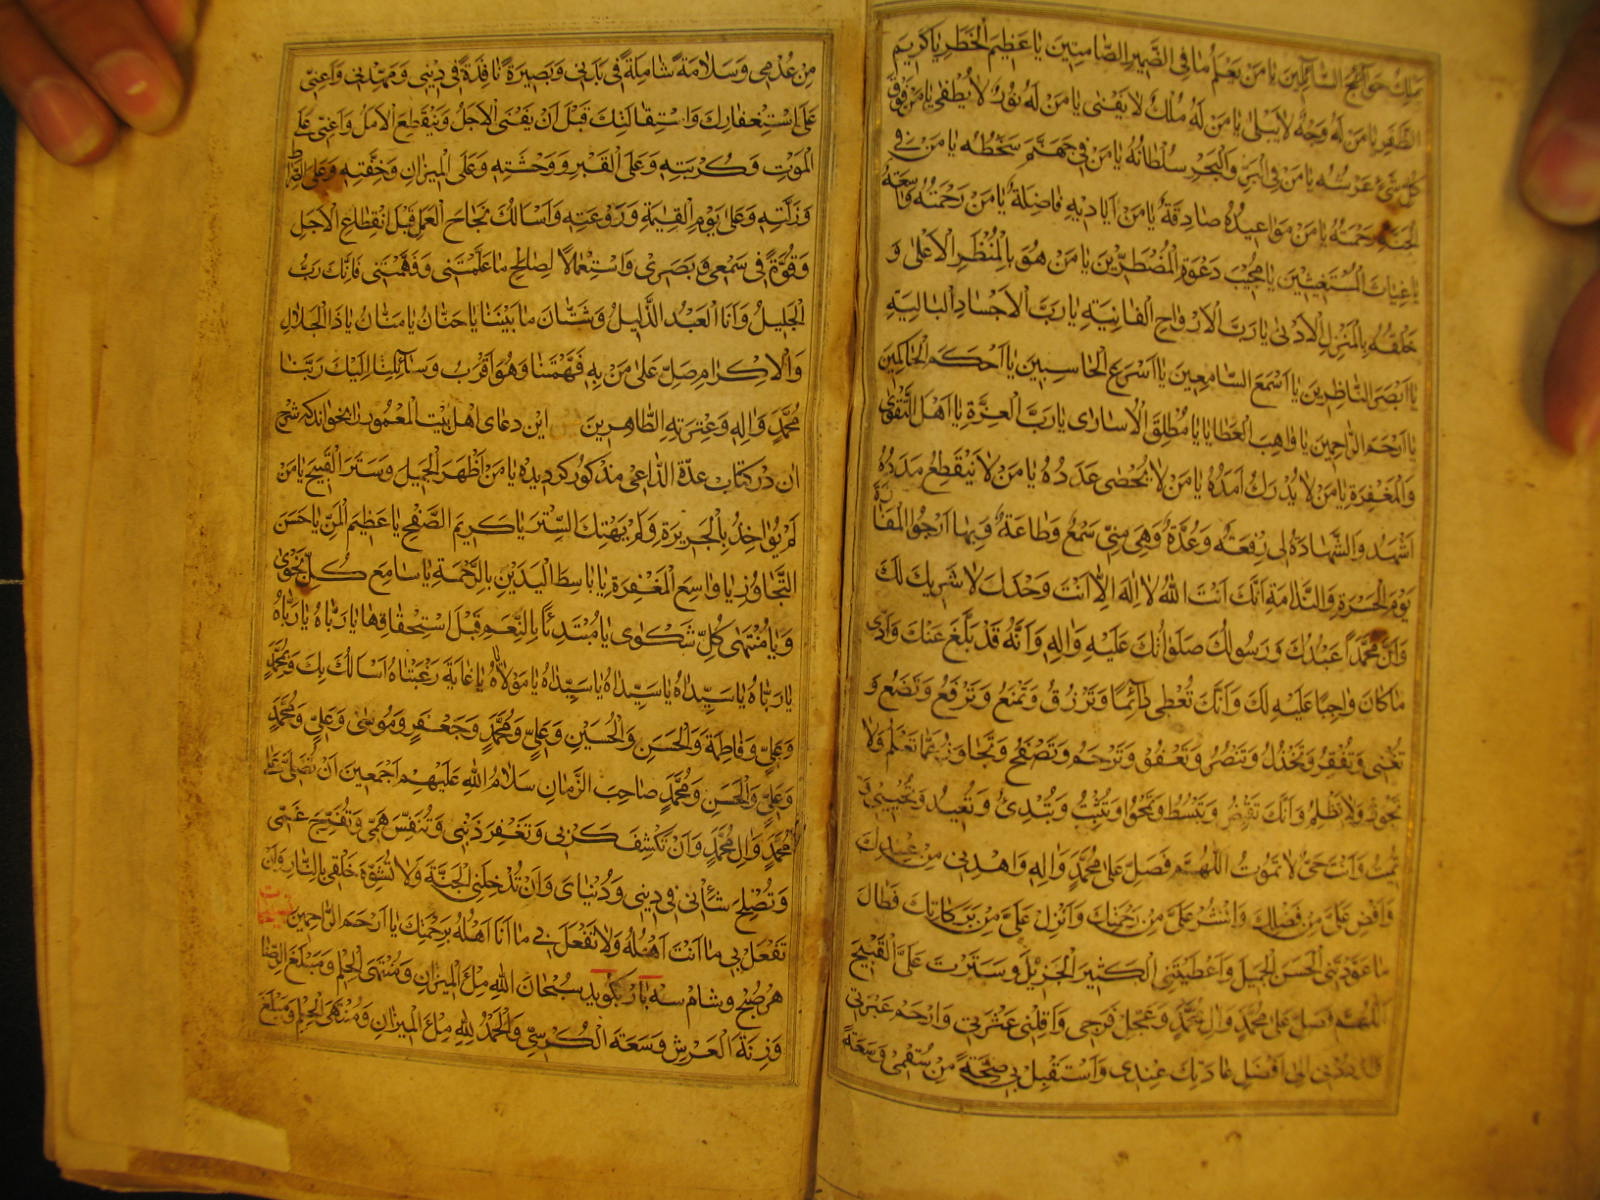 يملك حوائج السائلين يا من يعلم ما فى الضمير الصامتين يا عظيم الخطر يا كريم
الظفر يا من له وجه لا يبلى يا من له ملك لا يفنى يا من له نور لا يطفى يا من فوق
كل شئ عرشه يا من فى البر والبحر سلطانه يا من فى جهنم سخطه يا من فى
الجنة رحمته يا من مواعيده صادقة يا من اياديه فاضلة يا من رحمته واسعة
يا غياث المستغيثين يا مجيب دعوة المضطرين يا من هو بالمنظر الاعلى و
خلقه بالمنزل الادنى يا رب الارواح الفانية يا رب الاجساد البالية
يا ابصر الناظرين يا اسمع السامعين يا اسرع الحاسبين يا احكم الحاكمين
يا ارحم الراحمين يا واهب العطايا يا مطلق الاسارى يا رب العزة يا اهل التقوى
والمغفرة يا من لا يدرك امده يا من لا يحصى عدده يا من لا ينقطع مدده
اشهد والشهادة لى رفعة وعدة وهى منى سمع وطاعة وبها ارجوا المفازة
يوم الحسرة والندامة انك انت الله لا اله الا انت وحدك لا شريك لك
وان محمدا عبدك ورسولك صلواتك عليه واله وانه قد بلغ عنك وادى
ما كان واجبا عليه لك وانك تعطى دائما وترزق وتمنع وترفع وتضع و
تغنى وتفقر وتخذل وتنصر وتعفو وترحم وتصفح وتجاوز عما تعلم ولا
تجور ولا تظلم وانك تقبض وتبسط وتمحوا وتثبت وتبدئ وتعيد وتحيى و
تميت وانت حى لا تموت اللهم فصل على محمد واله واهدنى من عندك
وافض على من فضلك وانشر على من رحمتك وانزل على من بركاتك فطال
ما عودتنى الحسن الجميل واعطيتنى الكثير الجزيل وسترت على القبيح
اللهم فصل على محمد وال محمد وعجل فرجى واقلنى عثرتى وارحم عبرتى
الى افضل عادتك عندى واستقبل بى صحة من سقمى وسعة
من عدمى وسلامة شاملة فى بدنى وبصيرة نافذة فى دينى ومهدنى واعنى
على استغفارك واستقالتك قبل ان يفنى الاجل وينقطع الامل واعنى على
الموت وكربته وعلى القبر ووحشته وعلى الميزان وخفته وعلى الصراط
وزلته وعلى يوم القيمة وروعته واسالك نجاح العمل قبل انقطاع الاجل
وقوة فى سمعى وبصرى واستعمالا لصالح ما علمتنى وفهمتنى فانك رب
الجليل وانا العبد الذليل وشتان ما بيننا يا حنان يا منان يا ذا الجلال
والاكرام صل على من به فهمتنا وهو اقرب وسائلنا اليك ربنا
محمد واله وعترته الطاهرين اين دعاى اهل بيت المعمور را بخواند كه شرح
ان در كتاب عدة الداعى مذكور كرديده يا من اظهر الجميل وستر القبيح يا من
لم يؤاخذ بالجريرة ولم يهتك الستر يا كريم الصفح يا عظيم المن يا حسن
التجاوز يا واسع المغفرة يا باسط اليدين بالرحمة يا سامع كل نجوى
ويا منتهى كل شكوى يا مبتدئا بالنعم قبل استحقاقها يا رباه يا رباه
يا رباه يا سيداه يا سيداه يا سيداه يا مولاه يا غاية رغبتاه اسالك بك وبمحمد
وعلى وفاطمة والحسن والحسين وعلى ومحمد وجعفر وموسى وعلى ومحمد
وعلى والحسن ومحمد صاحب الزمان سلام الله عليهم اجمعين ان تصلى على
محمد وال محمد وان تكشف كربى وتغفر ذنبى وتنفس همى وتفرج غمى
وتصلح شأنى فى دينى ودنياى وان تدخلنى الجنة ولا تشوه خلقى بالنار وان
تفعل بى ما انت اهله ولا تفعل بى ما انا اهله برحمتك يا ارحم الراحمين
هر صبح وشام سه بار بگويد سبحان الله ملأ الميزان ومنتهى الحلم ومبلغ الرضا
وزنة العرش وسعة الكرسى والحمد لله ملأ الميزان ومنتهى الحلم ومبلغ